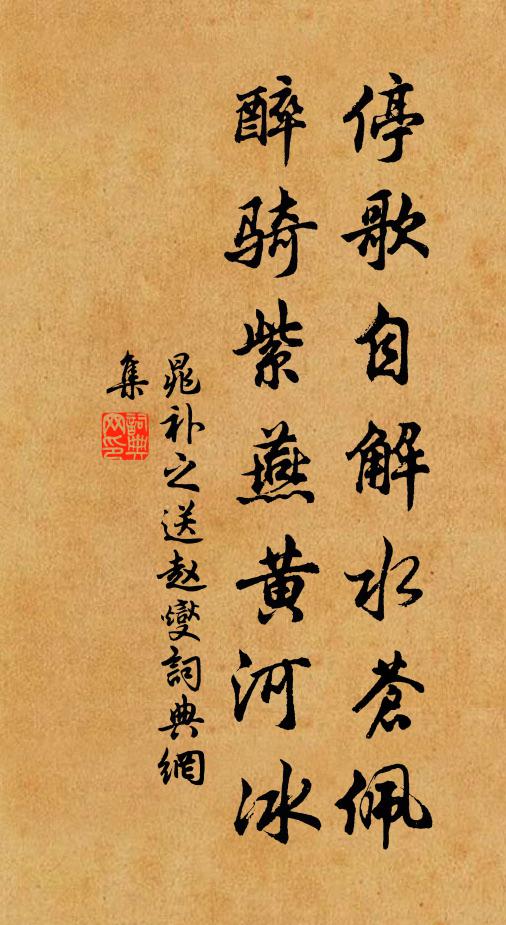 停歌自解水蒼佩
醉骑紫燕黄河冰
晁补之送赵燮詞典網
集
詞典
网印